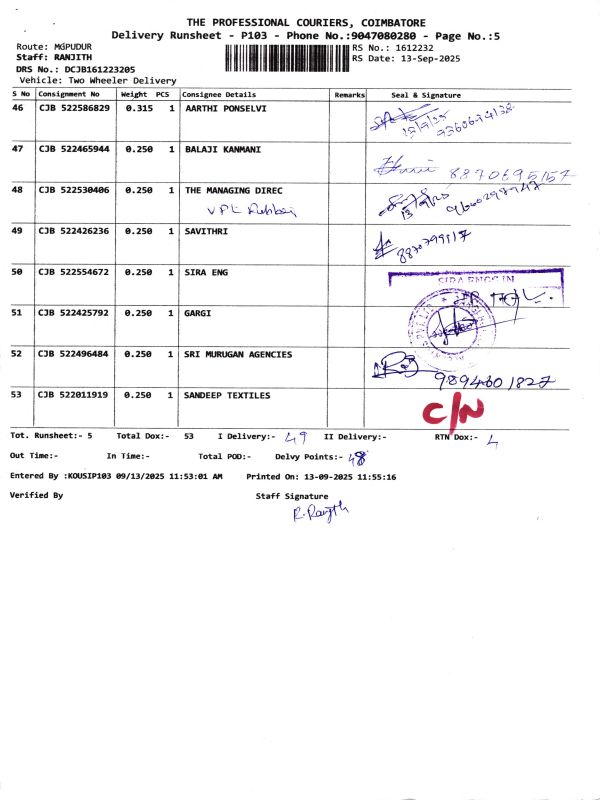 THE PROFESSIONAL COURIERS, COIMBATORE
Delivery Runsheet - P103 - Phone No.:9047080280 - Page No.:5
Route: MGPUDUR RS No.: 1612232
Staff: RANJITH RS Date: 13-Sep-2025
DRS No.: DCJB161223205
Vehicle: Two Wheeler Delivery
S No Consignment No Weight PCS Consignee Details Remarks Seal & Signature
46 CJB 522586829 0.315 1 AARTHI PONSELVI
47 CJB 522465944 0.250 1 BALAJI KANMANI
8870695157
48 CJB 522530406 0.250 1 THE MANAGING DIREC
VPL Rubber
49 CJB 522426236 0.250 1 SAVITHRI
50 CJB 522554672 0.250 1 SIRA ENG
51 CJB 522425792 0.250 1 GARGI
52 CJB 522496484 0.250 1 SRI MURUGAN AGENCIES
9894601827
53 CJB 522011919 0.250 1 SANDEEP TEXTILES
C/N
Tot. Runsheet:- 5 Total Dox:- 53 I Delivery:- 49 II Delivery:- RTN Dox:- 4
Out Time:- In Time:- Total POD:- Delvy Points:- 48
Entered By :KOUSIP103 09/13/2025 11:53:01 AM Printed On: 13-09-2025 11:55:16
Verified By Staff Signature
R. Ranjith